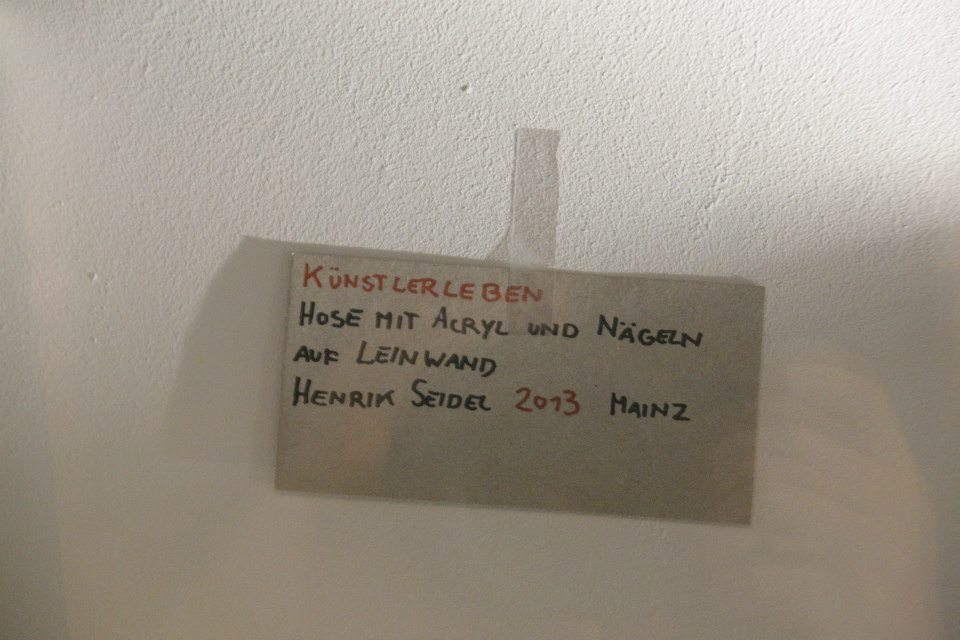 KÜNSTLERLEBEN
HOSE MIT ACRYL UND NÄGELN
AUF LEINWAND
HENRIK SEIDEL 2013 MAINZ